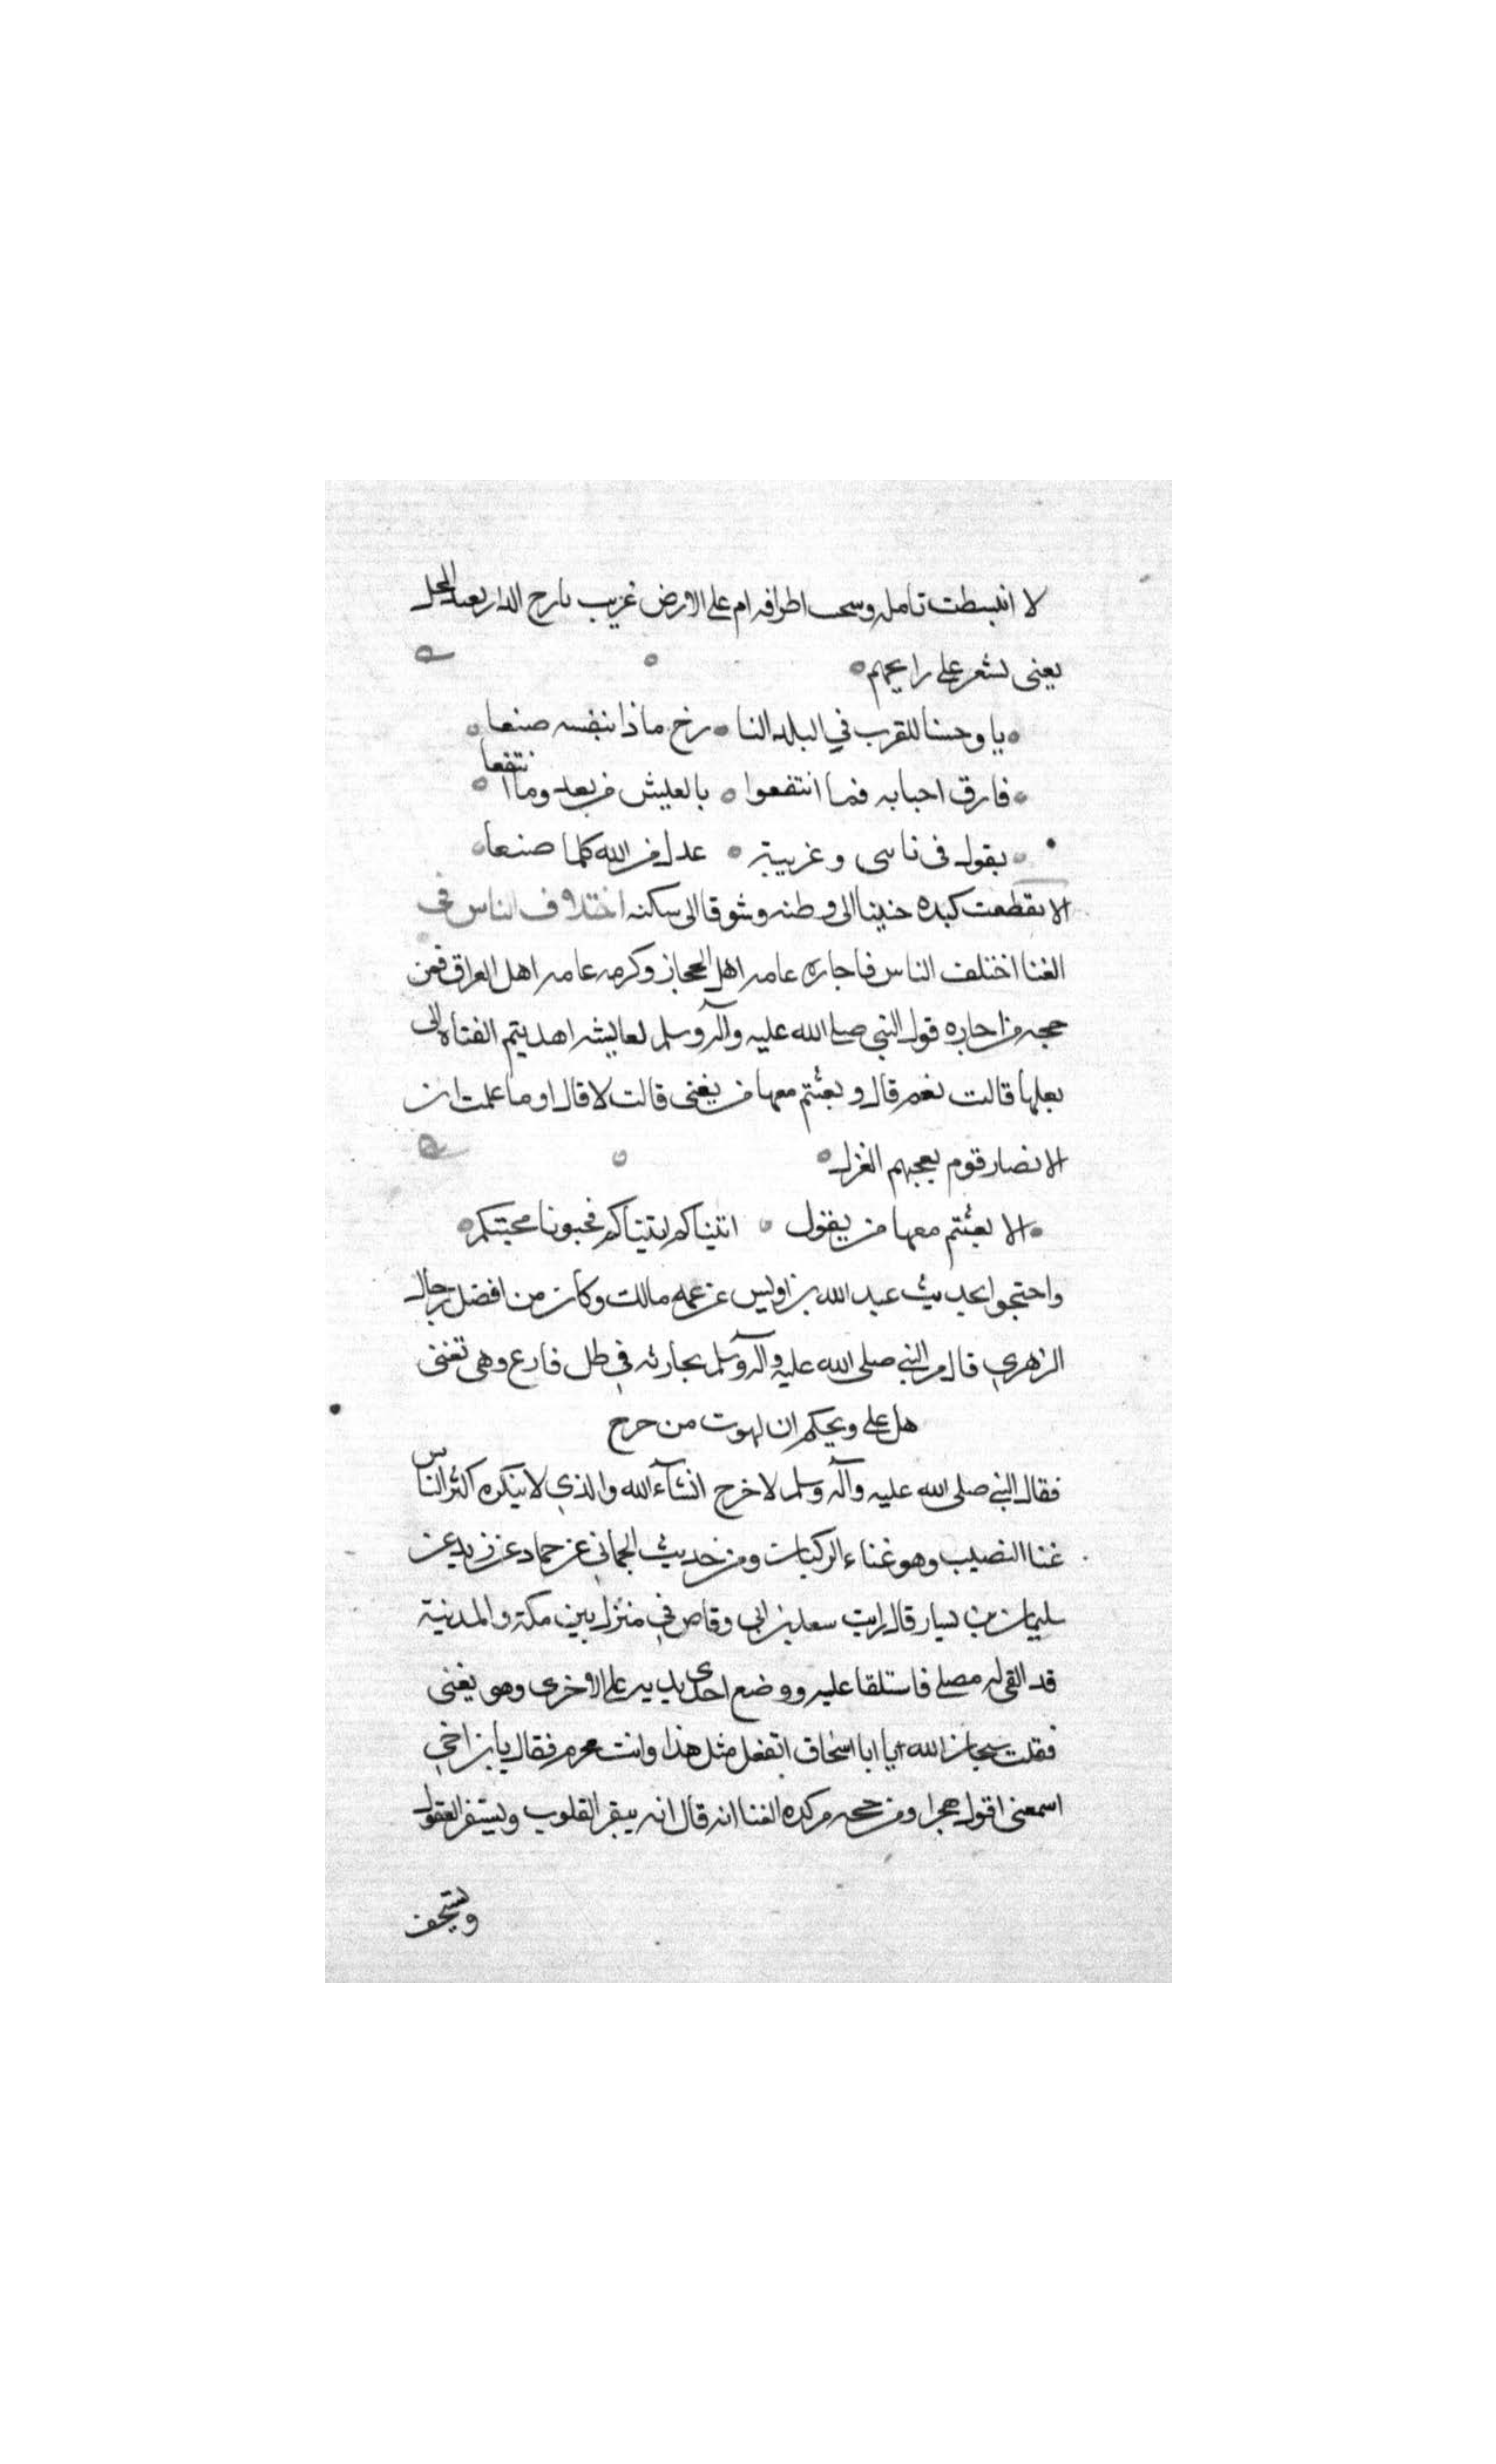 لا انبسطت تامله وسحب اطرافه ام على الارض غريب نازح الدار بعيد المحل
يعنى بشعر على راعيهم
يا وحسنا للقرب في البلد النا زح ماذا بنفسه صنعا
فارق احبابه فما انتفعوا بالعيش من بعد وما انتفعا
يقول فى ناى وغريبته عدل من الله كلما صنعا
الا تقطعت كبده حنينا الى وطنه وشوقا الى سكنه اختلاف الناس فى
الغنا اختلف الناس فاجازه عامه اهل الحجاز وكرهه عامه اهل العراق فمن
حجه من اجازه قول النبي صلى الله عليه وآله وسلم لعايشه اهديتم الفتاة الى
بعلها قالت نعم قال و بعثتم معها من يغنى قالت لا قال او ما علمت ان
الانصار قوم يعجبهم الغزل
الا بعثتم معها من يقول اتيناكم اتيناكم فحبونا محبتكم
واحتجوا بحديث عبد الله بن اويس عن عمه مالك وكان من افضل رجال
الزهري قال مر النبي صلى الله عليه وآله وسلم بجاريه في ظل فارع وهى تغنى
هل على ويحكم ان لهوت من حرج
فقال النبي صلى الله عليه وآله وسلم لا حرج انشآء الله والذي لا ينكره اكثر الناس
غنا النصيب وهو غناء الركبان ومن حديث الجمانى عن حماد عن زيد عن
سليمان بن يسار قال رايت سعد بن ابى وقاص في منزل بين مكة والمدينة
قد القى له مصلى فاستلقا عليه ووضع احدى يديه على الاخرى وهو يغنى
فقلت سبحان الله ايا ابا اسحاق اتفعل مثل هذا وانت محرم فقال يا بن اخي
اسمعنى اقول هجرا ومن حجه من كره الغنا انه قال انه يبقر القلوب ويستفز العقول
ويستخف